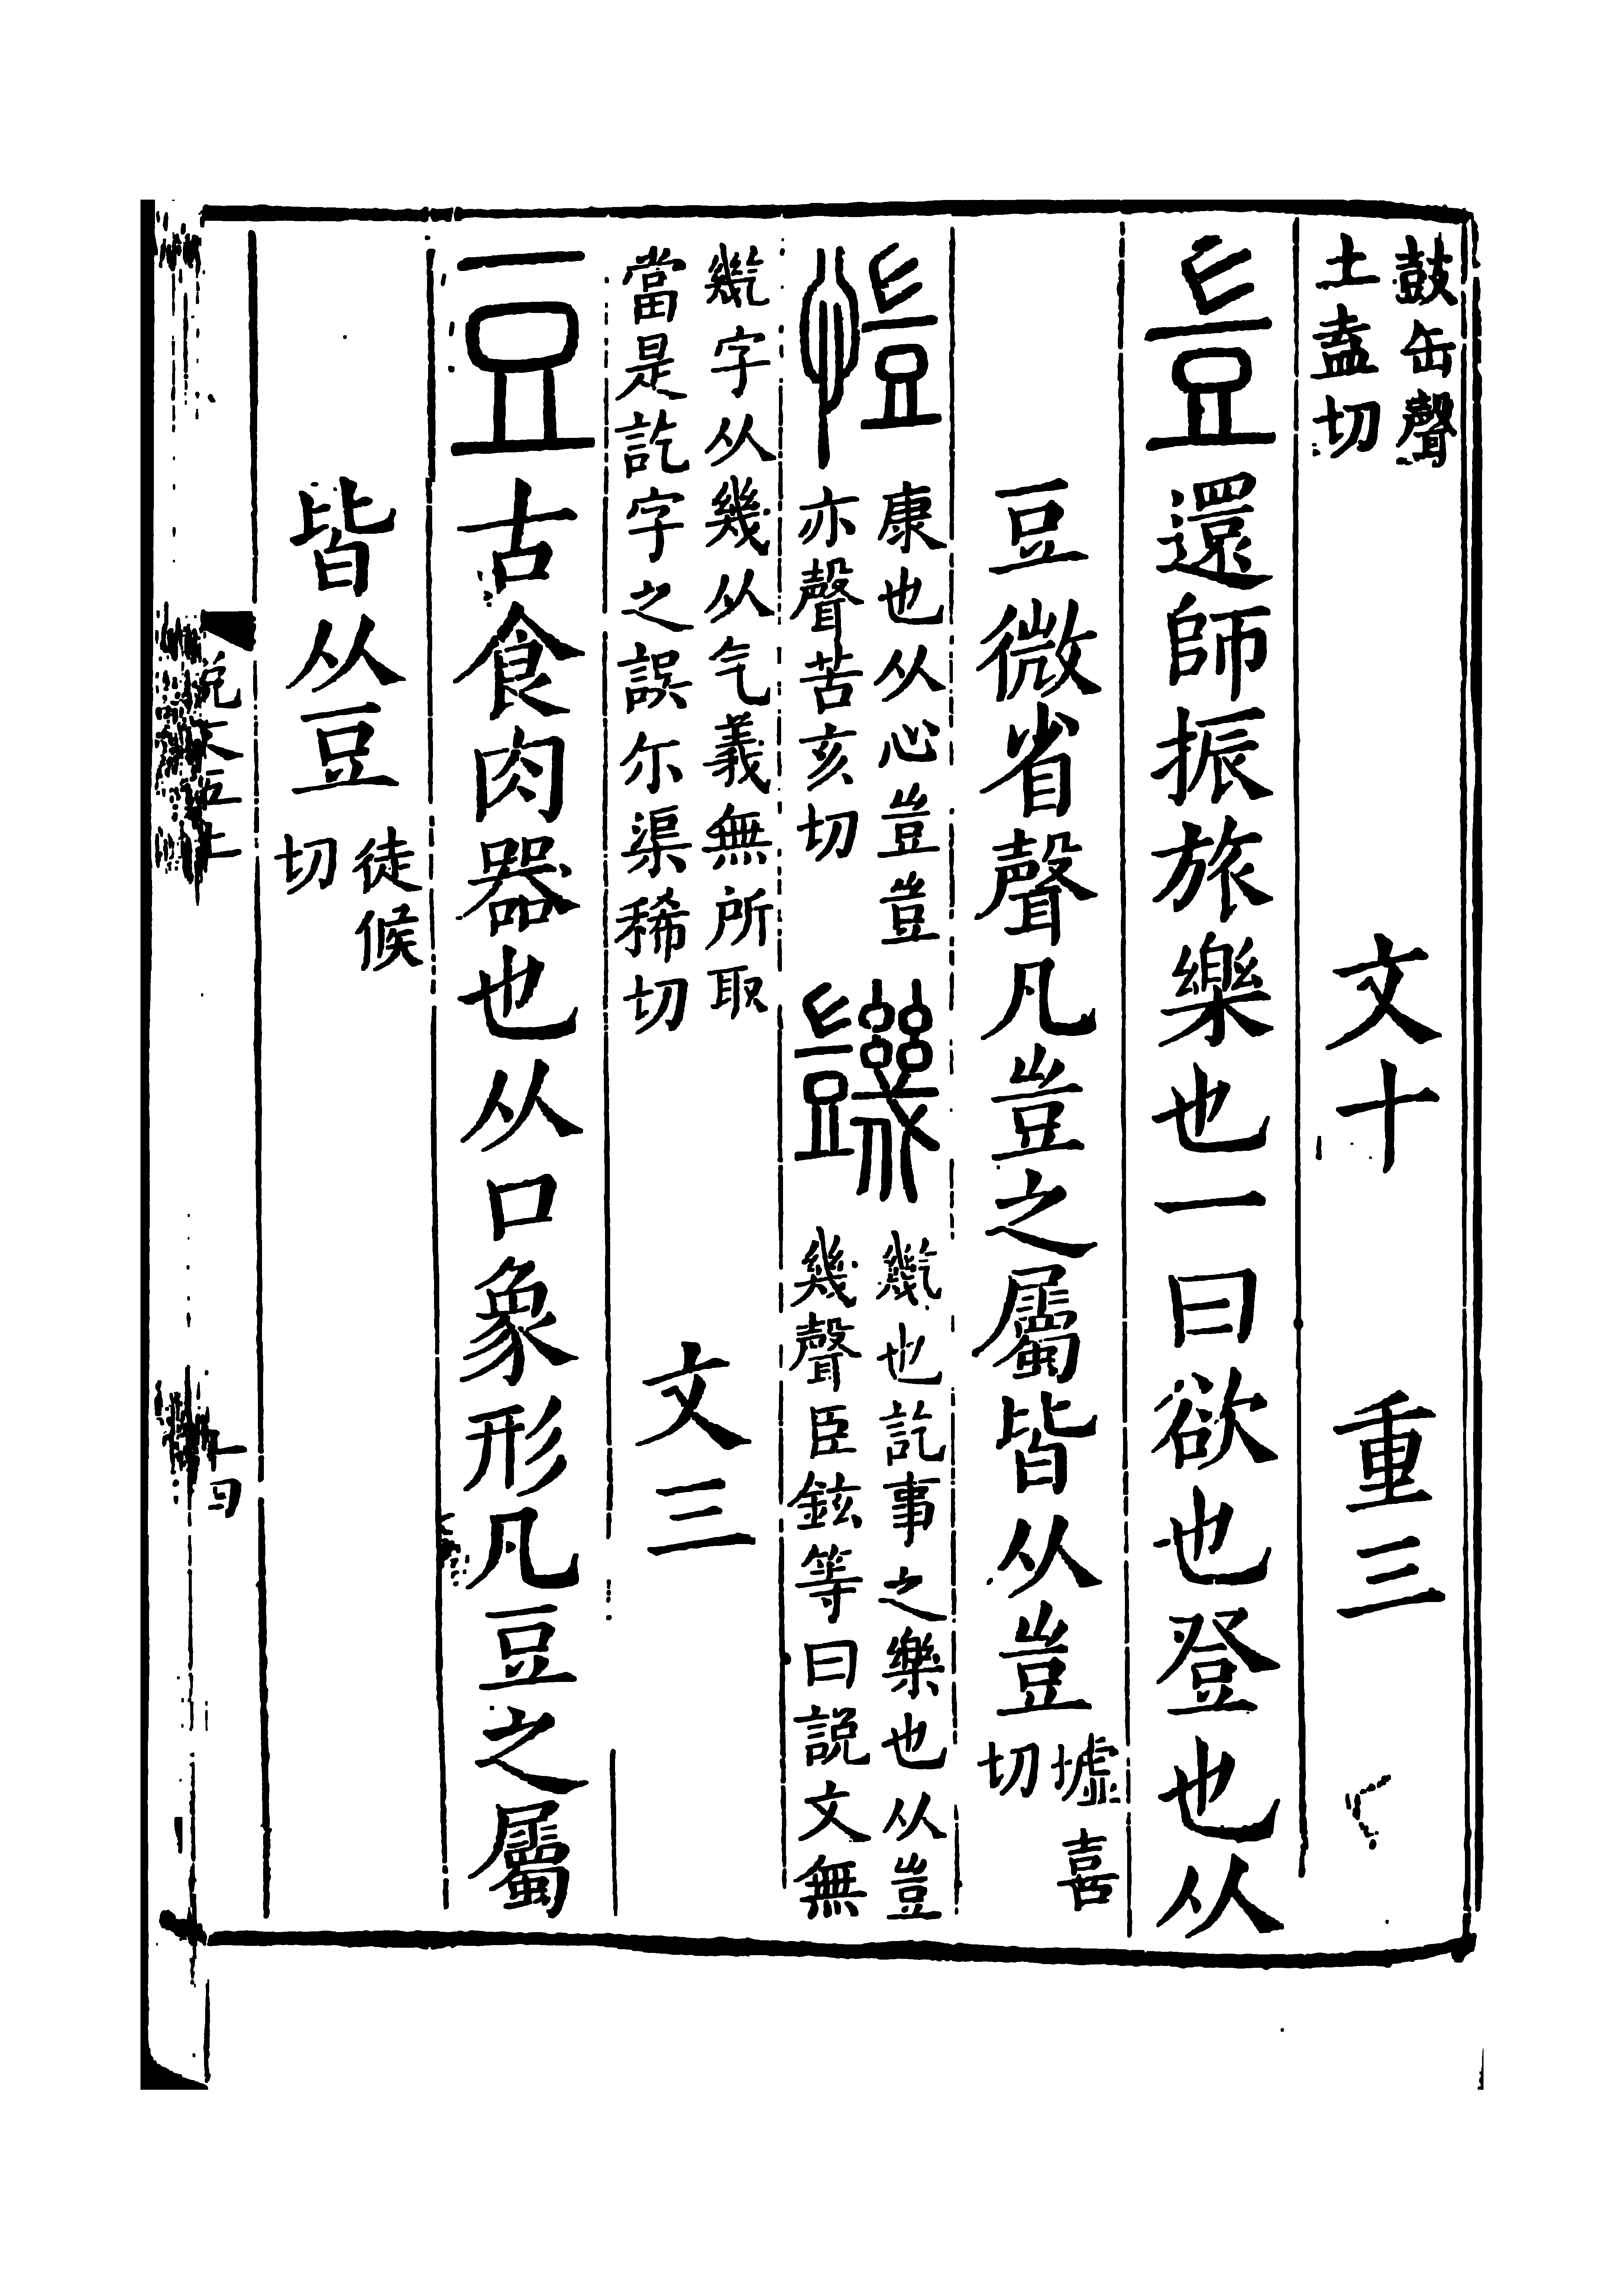 鼓缶聲
土盍切
文十
重三
豈還師振旅樂也一曰欲也登也从
豆微省聲凡豈之屬皆从豈
墟喜
切
愷
康也从心豈豈
亦聲苦亥切
𧰙
𣤶也訖事之樂也从豈
幾聲臣鉉等曰説文無
𣤶字从幾从气義無所取
當是訖字之誤尒渠稀切
文三
豆古食肉器也从口象形凡豆之屬
皆从豆
徒候
切